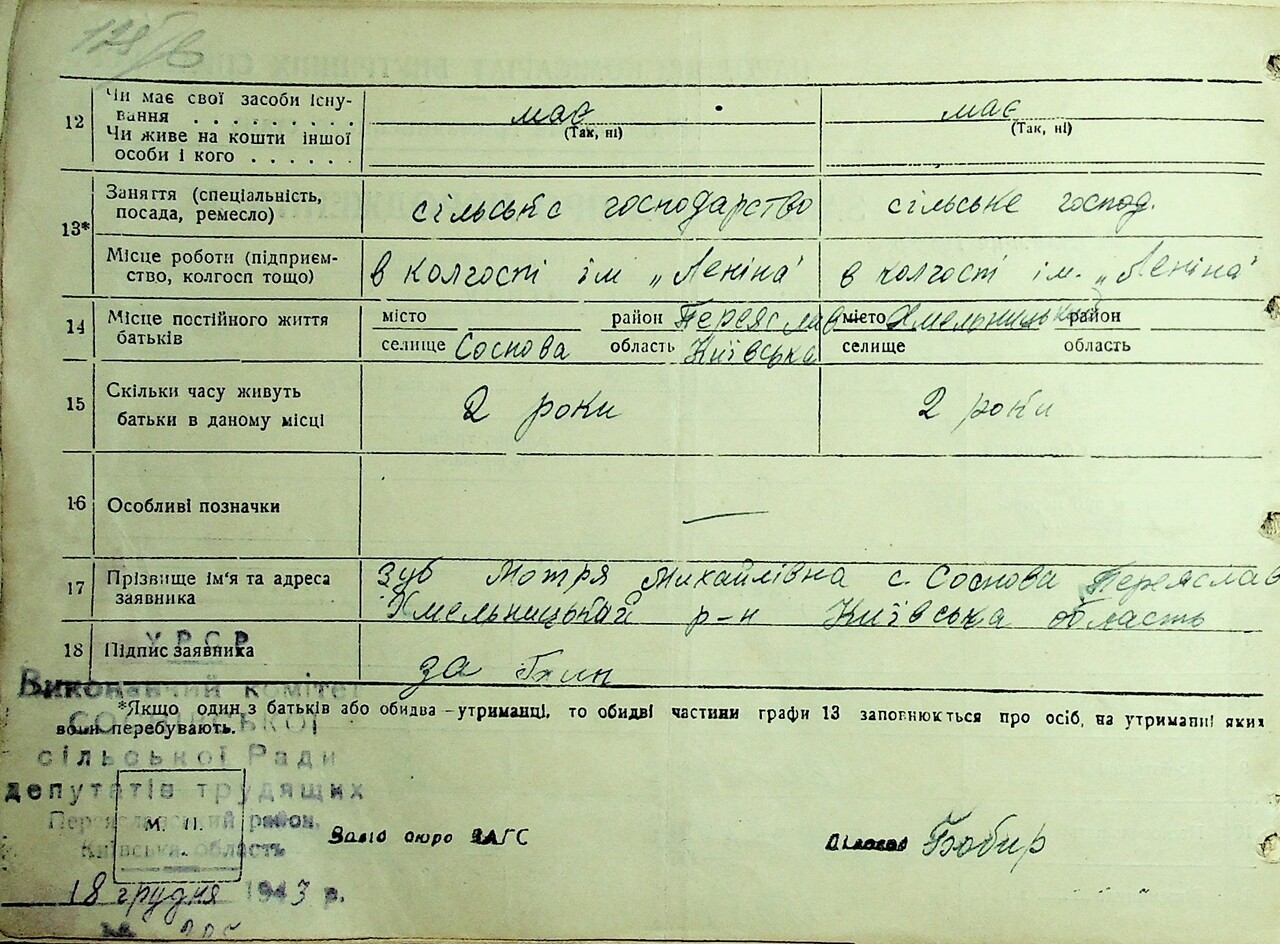 12 Чи має свої засоби існу-
вання . . . . . . . . . має має
Чи живе на кошти іншої (Так, ні) (Так, ні)
особи і кого . . . . . .
Заняття (спеціальність,
посада, ремесло) сільське господарство сільське господ.
13*
Місце роботи (підприєм-
ство, колгосп тощо) в колгості ім „Леніна" в колгості ім. „Леніна"
14 Місце постійного життя місто район Переяслав місто Хмельницький район
батьків селище Соснова область Київська селище область
15 Скільки часу живуть
батьки в даному місці 2 роки 2 роки
16 Особливі позначки —
17 Прізвище ім'я та адреса Зуб Мотря Михайлівна с. Соснова Переяслав
заявника Хмельницький р-н Київська область
У.Р.С.Р.
18 Підпис заявника за
Виконавчий комітет
*Якщо один з батьків або обидва - утриманці, то обидві частини графи 13 заповнюється про осіб, на утриманні яких
вони перебувають.
сільської Ради
депутатів трудящих
Переяславський район,
М. П.
Київська область
бюро ЗАГС Бобир
18 грудня 1943 р.